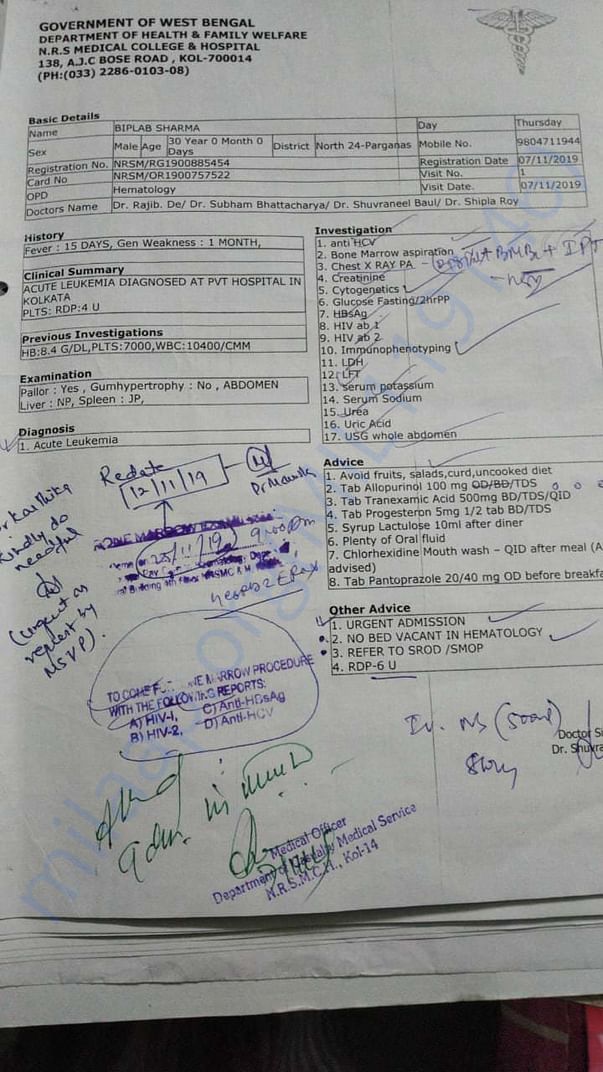 GOVERNMENT OF WEST BENGAL
DEPARTMENT OF HEALTH & FAMILY WELFARE
N.R.S MEDICAL COLLEGE & HOSPITAL
138, A.J.C BOSE ROAD , KOL-700014
(PH:(033) 2286-0103-08)
Basic Details
Name BIPLAB SHARMA Day Thursday
Sex Male Age 30 Year 0 Month 0 Days District North 24-Parganas Mobile No. 9804711944
Registration No. NRSM/RG1900885454 Registration Date 07/11/2019
Card No NRSM/OR1900757522 Visit No. 1
OPD Hematology Visit Date. 07/11/2019
Doctors Name Dr. Rajib. De/ Dr. Subham Bhattacharya/ Dr. Shuvraneel Baul/ Dr. Shipla Roy
History
Fever : 15 DAYS, Gen Weakness : 1 MONTH,
Clinical Summary
ACUTE LEUKEMIA DIAGNOSED AT PVT HOSPITAL IN
KOLKATA
PLTS: RDP:4 U
Previous Investigations
HB:8.4 G/DL,PLTS:7000,WBC:10400/CMM
Examination
Pallor : Yes , Gumhypertrophy : No , ABDOMEN
Liver : NP, Spleen : JP,
Diagnosis
1. Acute Leukemia
Investigation
1. anti HCV
2. Bone Marrow aspiration
3. Chest X RAY PA
4. Creatinine
5. Cytogenetics
6. Glucose Fasting/2hrPP
7. HBsAg
8. HIV ab 1
9. HIV ab 2
10. Immunophenotyping
11. LDH
12. LFT
13. serum potassium
14. Serum Sodium
15. Urea
16. Uric Acid
17. USG whole abdomen
BMBx + IPT
Advice
1. Avoid fruits, salads,curd,uncooked diet
2. Tab Allopurinol 100 mg OD/BD/TDS
3. Tab Tranexamic Acid 500mg BD/TDS/QID
4. Tab Progesteron 5mg 1/2 tab BD/TDS
5. Syrup Lactulose 10ml after diner
6. Plenty of Oral fluid
7. Chlorhexidine Mouth wash - QID after meal (A
advised)
8. Tab Pantoprazole 20/40 mg OD before breakfa
Other Advice
1. URGENT ADMISSION
2. NO BED VACANT IN HEMATOLOGY
3. REFER TO SROD /SMOP
4. RDP-6 U
Redate
12/11/19
Kindly do
needful
(urgent as
request by
MSVP).
BONE MARROW
25/11/19
9:00 pm
TO COME MARROW PROCEDURE
WITH THE FOLLOWING REPORTS:
A) HIV-I, C) Anti-HBsAg
B) HIV-2, D) Anti-HCV
Doctor Si
Dr. Shuvra
Medical Officer
Department of Medical Service
N.R.S.M.C.H., Kol-14